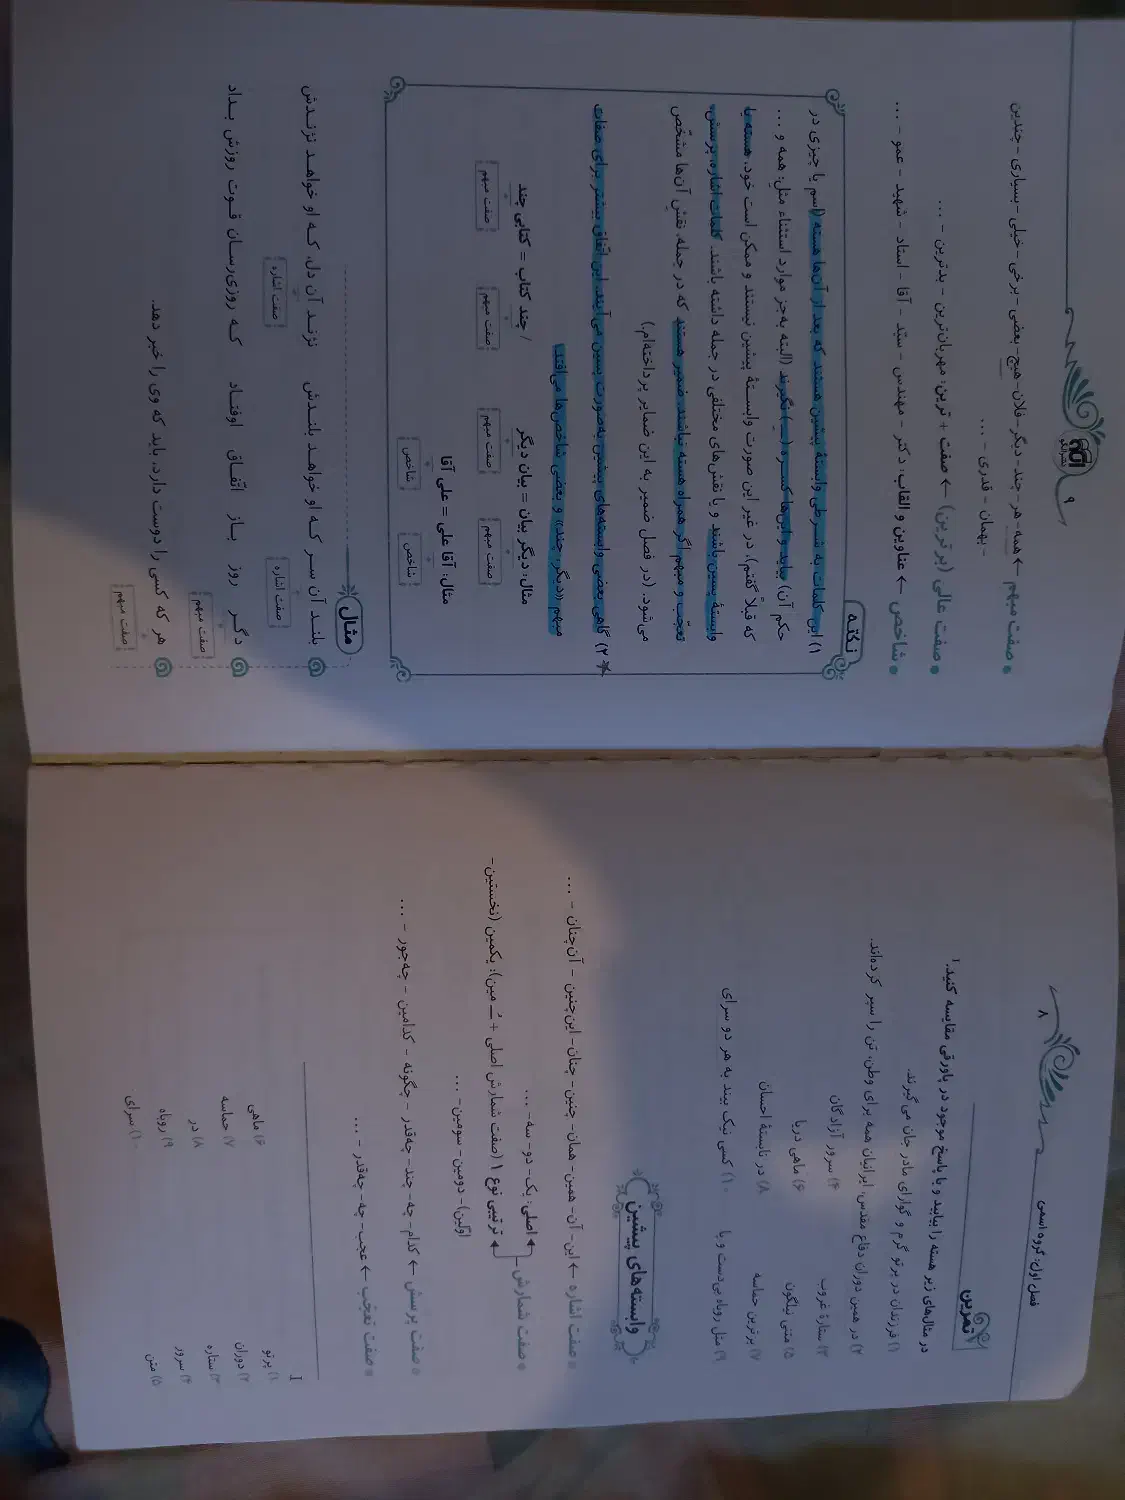 ۸
فصل اول: گروه اسمی
تمرین
در مثال‌های زیر هسته را بیابید و با پاسخ موجود در پاورقی مقایسه کنید.۱
۱) فرزندان در پرتو گرم و گوارای مادر جان می‌گیرند.
۲) در همین دوران دفاع مقدس، ایرانیان همه برای وطن، تن را سپر کرده‌اند.
۳) ستارهٔ غروب
۴) سرور آزادگان
۵) متنی نیلگون
۶) ماهی دریا
۷) برترین حماسه
۸) در نابستهٔ احسان
۹) مثل روباه بی‌دست و پا
۱۰) کسی نیک بیند به هر دو سرای
وابسته‌های پیشین
صفت اشاره ← این - آن - همین - همان - چنین - چنان - این‌چنین - آن‌چنان - ...
صفت شمارش
اصلی: یک - دو - سه - ...
ترتیبی نوع ۱ (صفت شمارش اصلی + ـُ مین): یکمین (نخستین - اوّلین) - دومین - سومین - ...
صفت پرسش ← کدام - چه - چند - چه‌قدر - چگونه - کدامین - چه‌جور - ...
صفت تعجّب ← عجب - چه - چه‌قدر - ...
۱
۱) پرتو
۲) دوران
۳) ستاره
۴) سرور
۵) متن
۶) ماهی
۷) حماسه
۸) در
۹) روباه
۱۰) سرای
الگو
نشر الگو
۹
صفت مبهم ← همه - هر - چند - دیگر - فلان - هیچ - بعضی - برخی - خیلی - بسیاری - چندین
- بهمان - قدری - ...
صفت عالی (برترین) ← صفت + ترین: مهربان‌ترین - بدترین - ...
شاخص ← عناوین و القاب: دکتر - مهندس - سیّد - آقا - استاد - شهید - عمو - ...
نکته
۱) این کلمات به شرطی وابستهٔ پیشین هستند که بعد از آن‌ها هسته (اسم یا چیزی در
حکم آن) بیاید و این‌ها کسره (ـِ) نگیرند (البته به‌جز موارد استثناء مثل: همه و ...
که قبلاً گفتم)؛ در غیر این صورت وابستهٔ پیشین نیستند و ممکن است خود، هسته یا
وابستهٔ پسین باشند و یا نقش‌های مختلفی در جمله داشته باشند. کلمات اشاره، پرسش،
تعجّب و مبهم اگر همراه هسته نباشند، ضمیر هستند که در جمله، نقشِ آن‌ها مشخّص
می‌شود. (در فصل ضمیر به این ضمایر پرداخته‌ام.)
۲) گاهی بعضی وابسته‌های پیشین به‌صورت پسین می‌آیند. این اتّفاق بیشتر برای صفات
مبهمِ «دیگر، چند» و بعضی شاخص‌ها می‌افتد:
مثال: دیگر بیان = بیان دیگر / چند کتاب = کتابی چند
صفت مبهم صفت مبهم صفت مبهم صفت مبهم
مثال: آقا علی = علی آقا
شاخص شاخص
مثال
بلند آن سر که او خواهد بلندش نژند آن دل، که او خواهد نژندش
صفت اشاره صفت اشاره
دگر روز باز اتّفاق اوفتاد که روزی‌رسان قوت روزش بداد
صفت مبهم
هر که کسی را دوست دارد، باید که وی را خبر دهد.
صفت مبهم